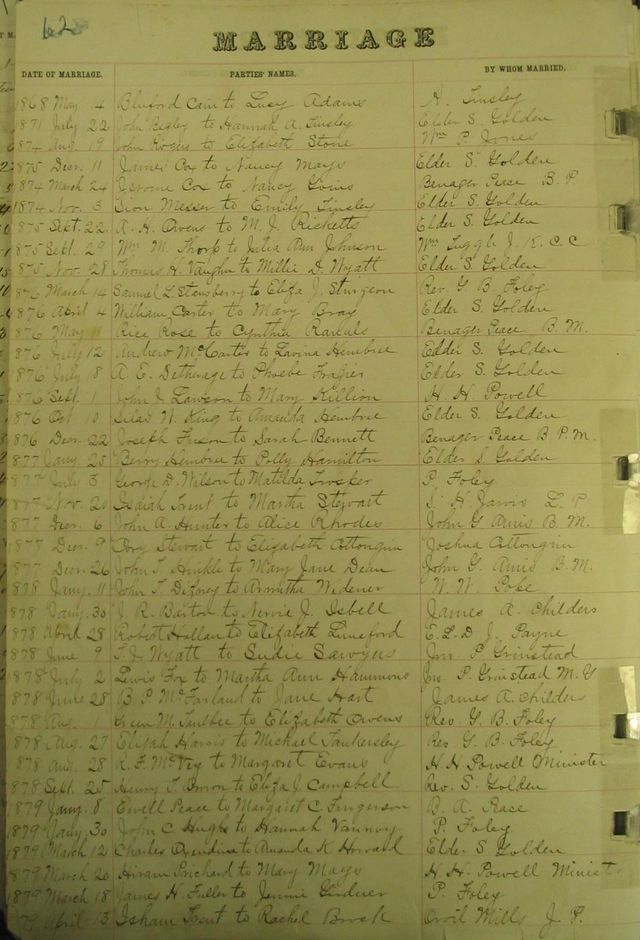 62
MARRIAGE
DATE OF MARRIAGE. PARTIES' NAMES. BY WHOM MARRIED.
1868 May 4 Bluford Cain to Lucy Adams H. Tinsley
1871 July 22 John Begley to Hannah A. Tinsley Elder S. Golden
1874 Aug 19 John Rogers to Elizabeth Stone Wm P. Jones
1875 Decr. 11 James Cox to Nancy Mays Elder S. Golden
1874 March 24 Jerome Cox to Nancy Goins Benager Peace B. P.
1874 Nov. 3 Messer to Emily Tinsley Elder S. Golden
1875 Sept. 22 A. H. Owens to M. J. Ricketts Elder S. Golden
1875 Sept. 29 Wm. M. Tharp to Julia Ann Johnson Wm. Tuggle J. K. C. C
1875 Nov. 28 Thomas H. Vaughn to Millie D. Wyatt Elder S. Golden
1876 March 14 Samuel L. Stansberry to Eliza J. Sturgeon Rev. G. B. Foley
1876 April 4 William Carter to Mary Bray Elder S. Golden
876 May 11 Rice Rose to Cynthia Benager Peace B. M.
876 July 12 Andrew McCarter to Lavina Hembree Elder S. Golden
1876 July 8 A. E. Dethevage to Phoebe Frazier Elder S. Golden
1876 Sept. 1 John J. Lawson to Mary Killion H. H. Powell
1876 Oct 10 Silas N. King to Amanda Hembree Elder S. Golden
876 Decr. 22 Joseph Fuson to Sarah Bennett Benager Peace B. P. M.
877 Jany 25 Berry Hembree to Polly Hamilton Elder S. Golden
877 July 3 George D. Wilson to Matilda Trosper P. Foley
1877 Nov. 20 Isaiah Trent to Martha Stewart J. H. Jarvis L. P.
877 Decr. 6 John A. Hunter to Alice Rhodes John G. Amis B. M.
1877 Decr. 9 Stewart to Elizabeth Cottongim Joshua Cottongim
877 Decr. 26 John T. Hinkle to Mary Jane Dean John G. Amis B. M.
878 Jany. 11 John T. to Armitha Widener W. W. Pope
878 Jany. 30 J. R. Barton to Nervie J. Isbell James A. Childers
878 April 28 Robert Hollan to Elizabeth Lunsford E. L. D. J. Payne
878 June 9 Wyatt to Sudie Sawyers Jno. P. Grinstead
878 July 2 Lewis Fox to Martha Ann Hammons Jno. P. Grinstead M. G
878 June 28 B. P. McFarland to Jane Hart James A. Childers
878 Aug. Green M. Faulbee to Elizabeth Owens Rev. G. B. Foley
878 Aug. 27 Elijah Harris to Michael Tankersley Rev G. B. Foley
878 Aug. 28 R. F. McVey to Margaret Evans H. H. Powell Minister
878 Sept. 25 Henry T. Brown to Eliza J. Campbell Rev. S. Golden
1879 Jany. 8 Ewell Peace to Margaret C. Furgerson B. A. Race
1879 Jany. 30 John C. Hughs to Hannah Vannoy P. Foley
1879 March 12 Charles to Amanda K. Howard Elder S. Golden
1879 March 20 Hiram Prichard to Mary Mays H. H. Powell Minist
1879 March 18 James H. Fuller to Jennie Gardner P. Foley
79 April 13 Isham Trent to Rachel Brock Orvil Mills J. P.